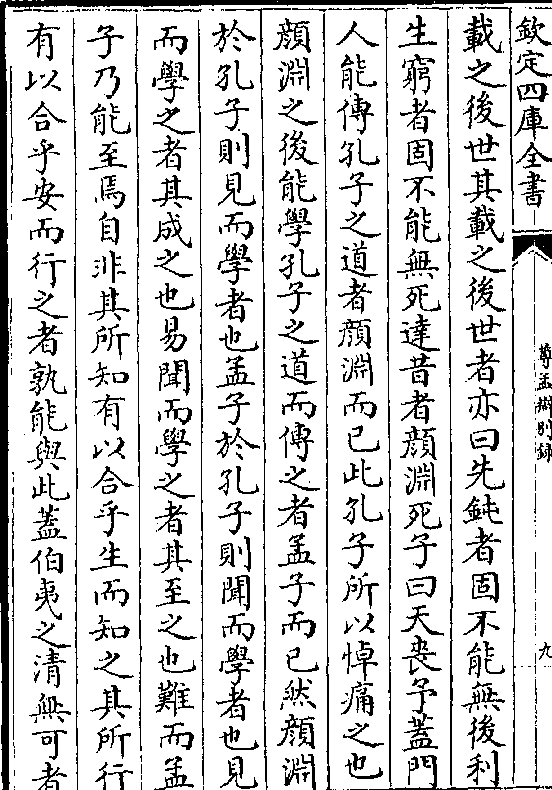 欽定四庫全書
尊孟辨別錄
九
載之後世其載之後世者亦曰先鈍者固不能無後利
生窮者固不能無死達昔者顏淵死子曰天喪予蓋門
人能傳孔子之道者顏淵而已此孔子所以悼痛之也
顏淵之後能學孔子之道而傳之者孟子而已然顏淵
於孔子則見而學者也孟子於孔子則聞而學者也見
而學之者其成之也易聞而學之者其至之也難而孟
子乃能至焉自非其所知有以合乎生而知之其所行
有以合乎安而行之者孰能與此蓋伯夷之清無可者